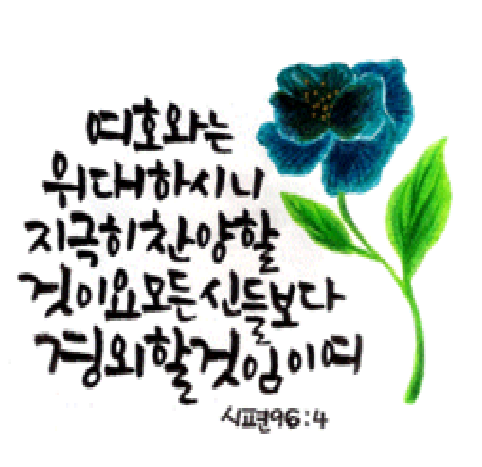 여호와는
위대하시니
지극히 찬양할
것이요 모든 신들보다
경외할 것임이여
시편96:4